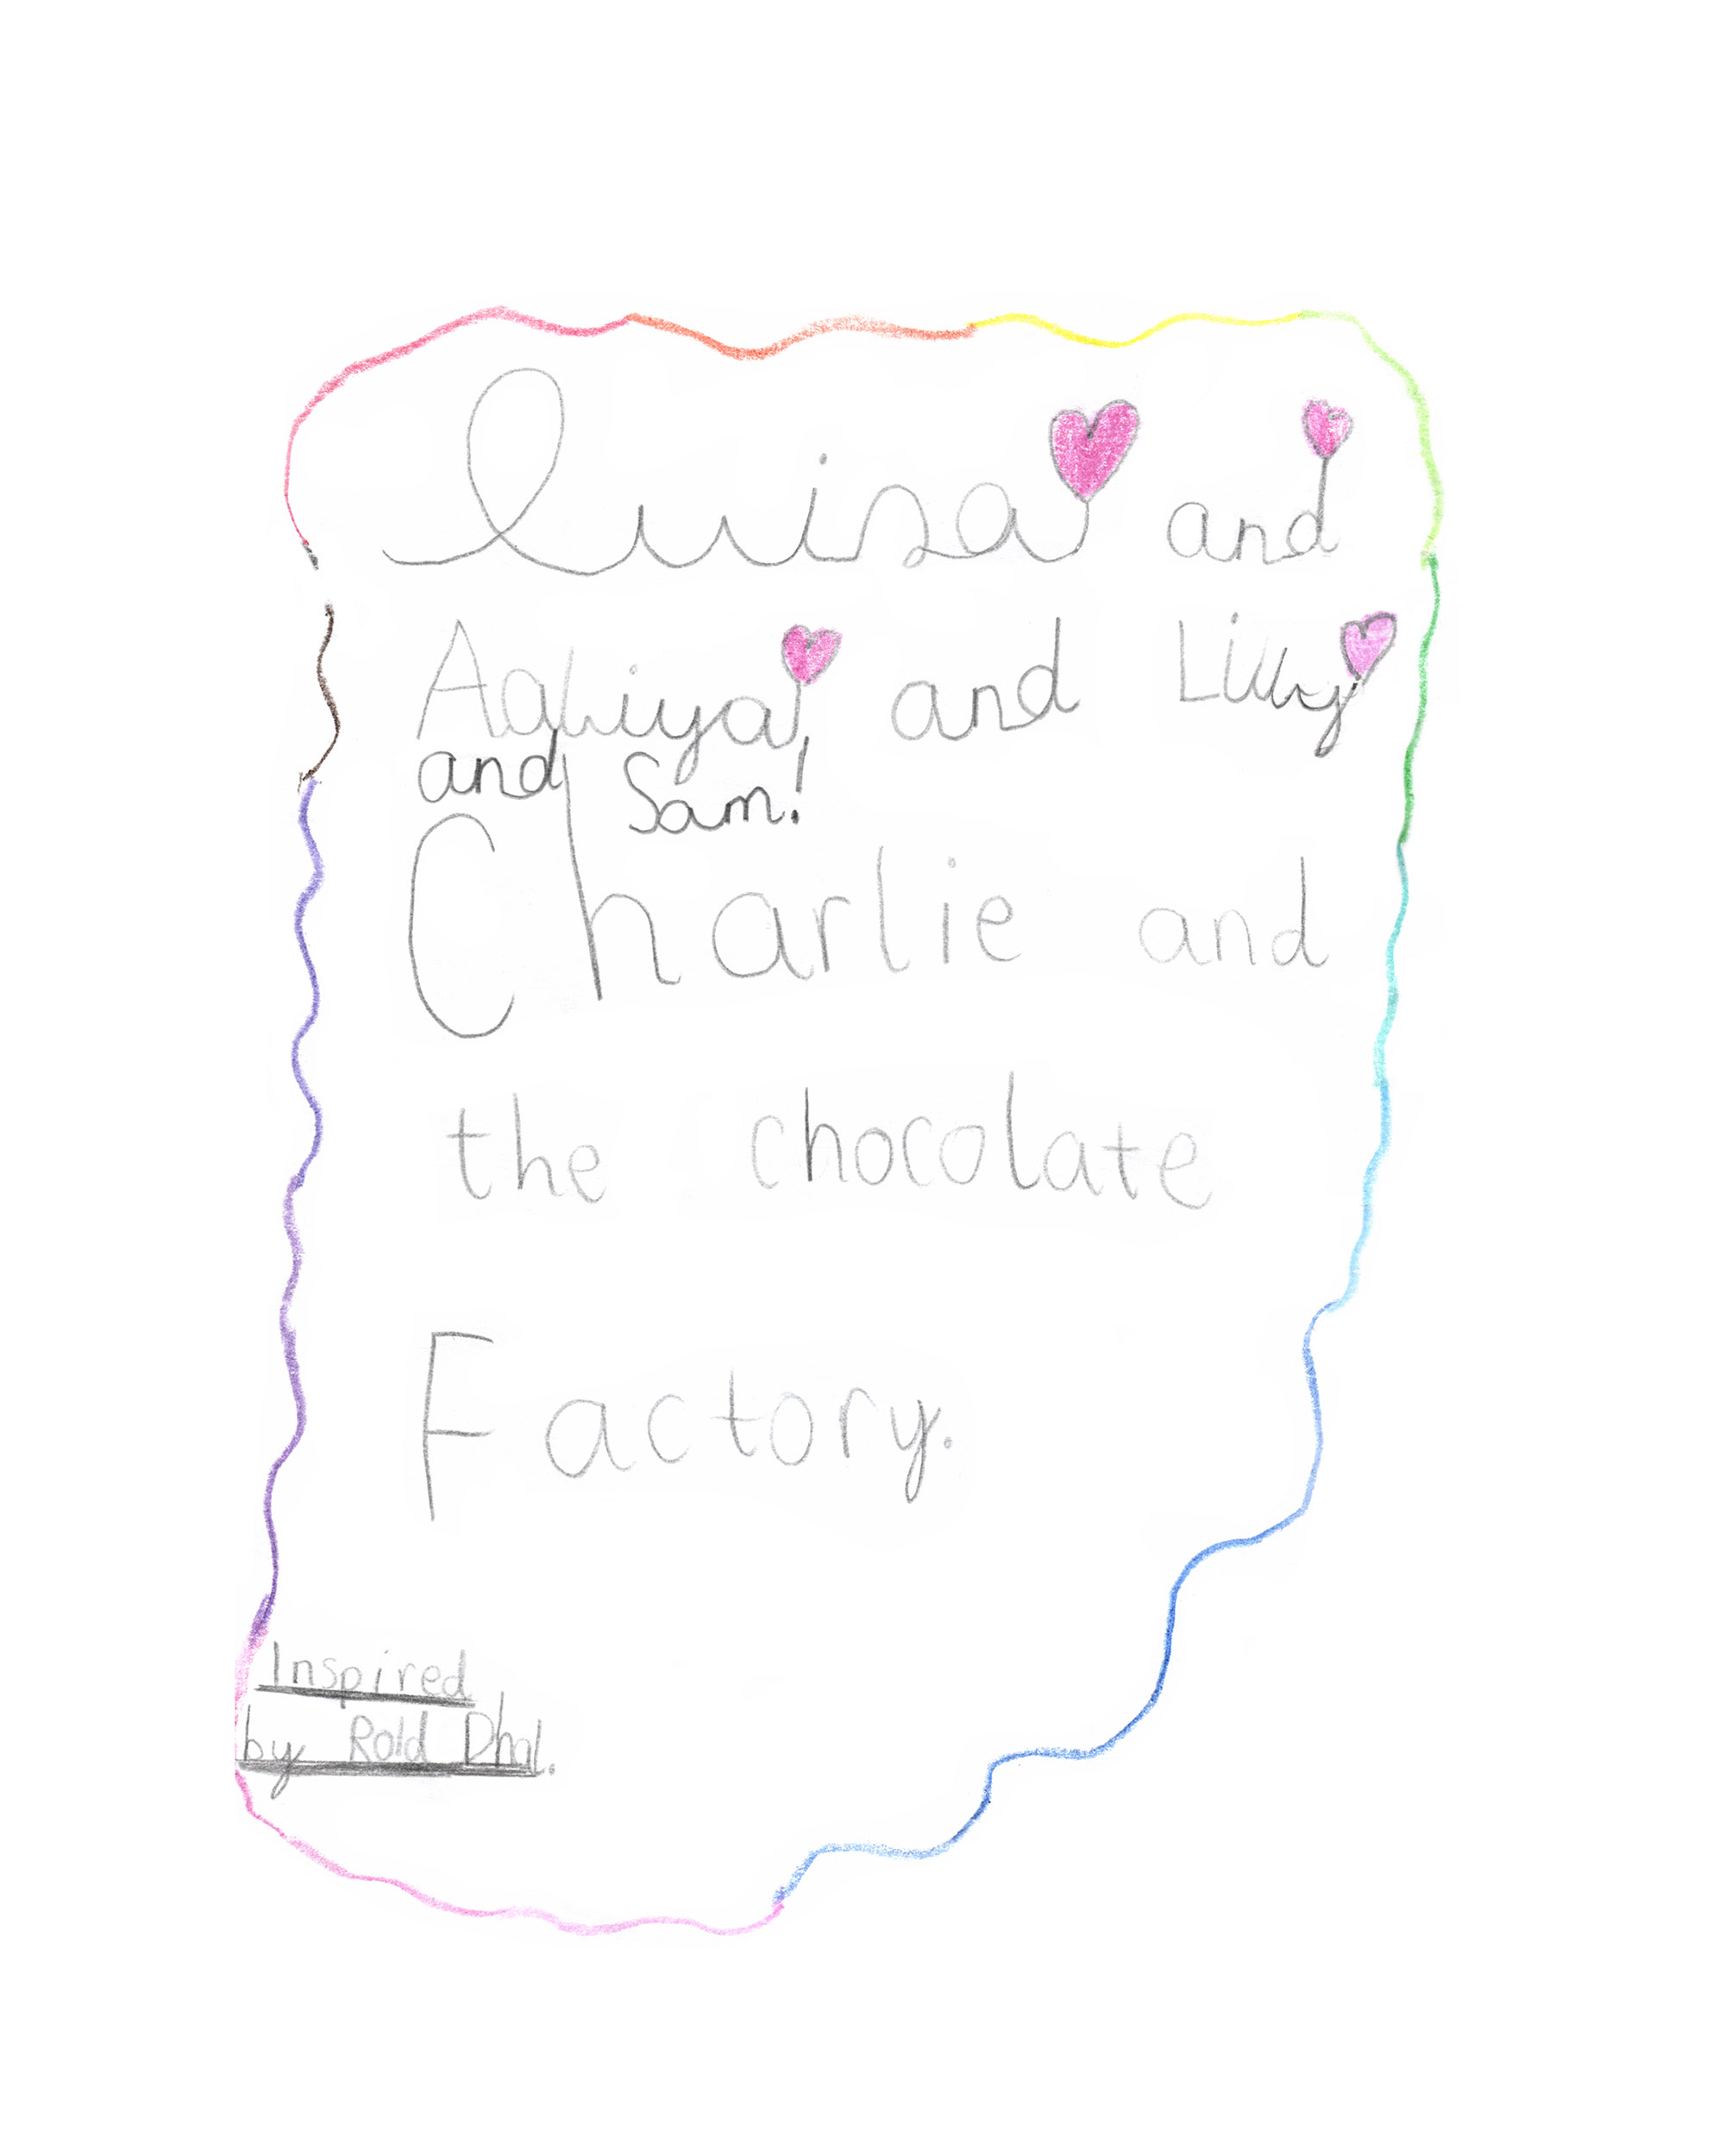 luisa and
Aaliya and Lilly
and Sam!
Charlie and
the chocolate
Factory.
Inspired
by Rold Dhal.